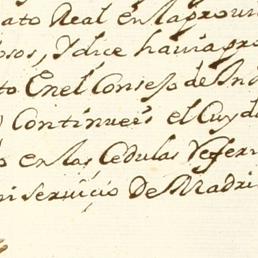 ato Real en la prou
osos, Y dice hauia pro
to En el Consejo de In
Continueis el Cuyda
en las Cedulas Referi
mi seruiçio De Madri